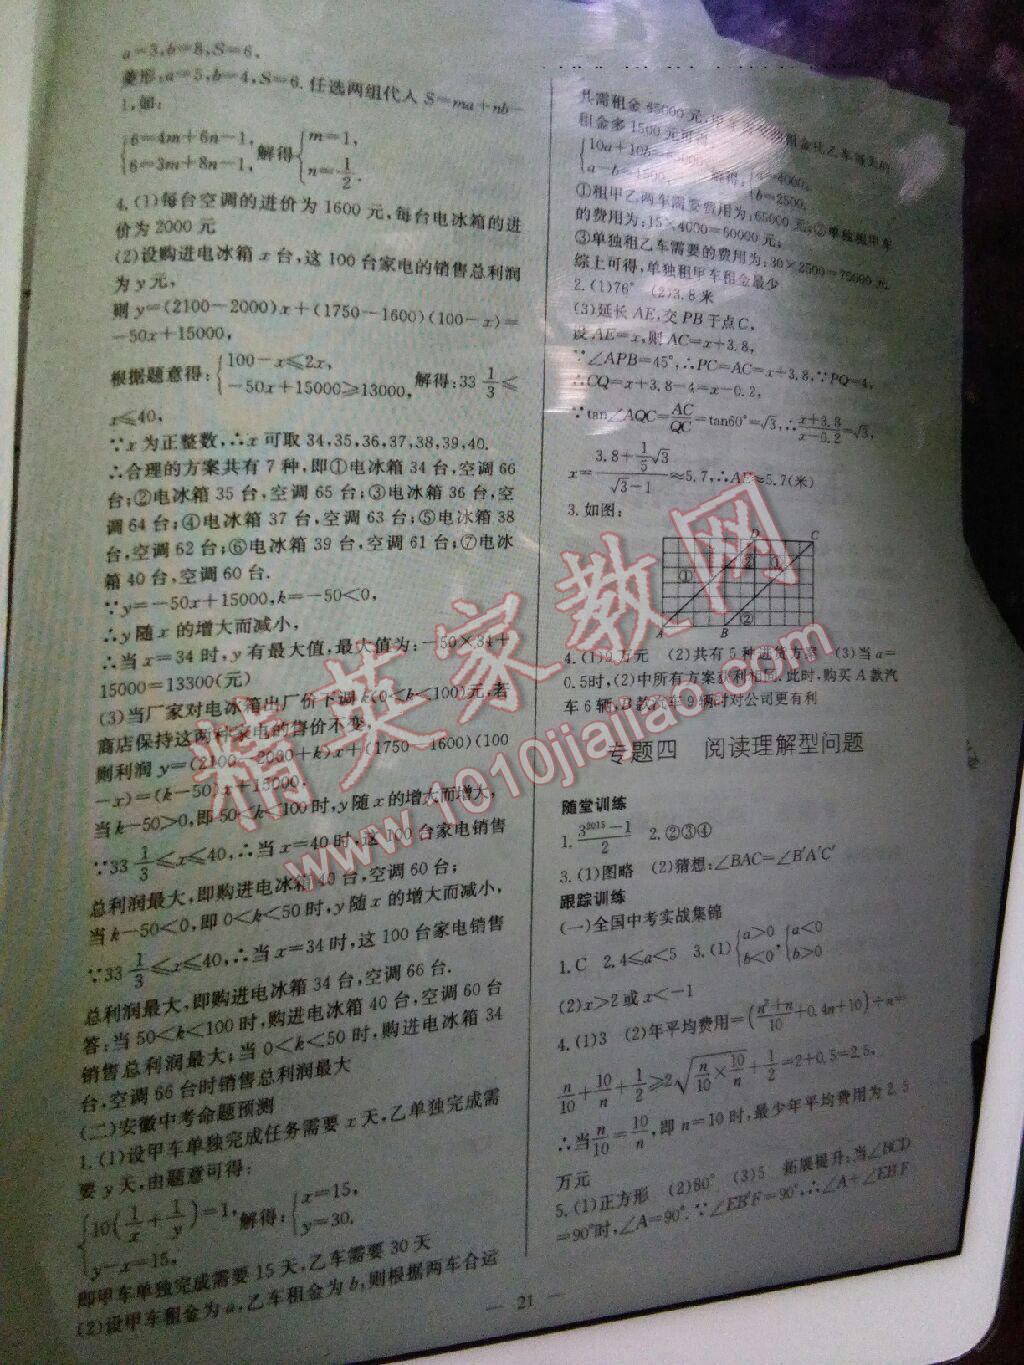 a=3,b=8,S=6,
菱形:a=5,b=4,S=6.任选两组代入S=ma+nb-
1,如:
{6=4m+6n-1, 6=3m+8n-1, 解得{m=1, n=1/2.
4.(1)每台空调的进价为1600元,每台电冰箱的进
价为2000元
(2)设购进电冰箱x台,这100台家电的销售总利润
为y元,
则y=(2100-2000)x+(1750-1600)(100-x)=
-50x+15000,
根据题意得:{100-x≤2x, -50x+15000≥13000, 解得:33 1/3≤
x≤40,
∵x为正整数,∴x可取34,35,36,37,38,39,40.
∴合理的方案共有7种,即①电冰箱34台,空调66
台;②电冰箱35台,空调65台;③电冰箱36台,空
调64台;④电冰箱37台,空调63台;⑤电冰箱38
台,空调62台;⑥电冰箱39台,空调61台;⑦电冰
箱40台,空调60台.
∵y=-50x+15000,k=-50<0,
∴y随x的增大而减小,
∴当x=34时,y有最大值,最大值为:-50×34+
15000=13300(元)
(3)当厂家对电冰箱出厂价下调k(0<k<100)元,若
商店保持这两种家电的售价不变,
则利润y=(2100-2000+k)x+(1750-1600)(100
-x)=(k-50)x+15000.
当k-50>0,即50<k<100时,y随x的增大而增大,
∵33 1/3≤x≤40,∴当x=40时,这100台家电销售
总利润最大,即购进电冰箱40台,空调60台;
当k-50<0,即0<k<50时,y随x的增大而减小,
∵33 1/3≤x≤40,∴当x=34时,这100台家电销售
总利润最大,即购进电冰箱34台,空调66台.
答:当50<k<100时,购进电冰箱40台,空调60台
销售总利润最大;当0<k<50时,购进电冰箱34
台,空调66台时销售总利润最大
(二)安徽中考命题预测
1.(1)设甲车单独完成任务需要x天,乙单独完成需
要y天,由题意可得:
{10(1/x+1/y)=1, y-x=15, 解得:{x=15, y=30.
即甲车单独完成需要15天,乙车需要30天
(2)设甲车租金为a,乙车租金为b,则根据两车合运
共需租金65000元,甲车
租金多1500元可得
{10a+10b=65000, a-b=1500, 解得:{a=4000, b=2500,
①租甲乙两车需要费用为:65000元;②单独租甲车
的费用为:15×4000=60000元;
③单独租乙车需要的费用为:30×2500=75000元
综上可得,单独租甲车租金最少
2.(1)76° (2)3.8米
(3)延长AE,交PB于点C,
设AE=x,则AC=x+3.8,
∵∠APB=45°,∴PC=AC=x+3.8,∵PQ=4,
∴CQ=x+3.8-4=x-0.2,
∵tan∠AQC=AC/QC=tan60°=√3,∴(x+3.8)/(x-0.2)=√3,
x=(3.8+1/5√3)/(√3-1)≈5.7,∴AE≈5.7(米)
3.如图:
D C
① ② ①
②
A B
4.(1)9万元 (2)共有5种进货方案 (3)当a=
0.5时,(2)中所有方案获利相同.此时,购买A款汽
车6辆,B款汽车9辆时对公司更有利
专题四 阅读理解型问题
随堂训练
1.(3^2015-1)/2 2.②③④
3.(1)图略 (2)猜想:∠BAC=∠B′A′C′
跟踪训练
(一)全国中考实战集锦
1.C 2.4≤a<5 3.(1){a>0 b<0,{a<0 b>0
(2)x>2或x<-1
4.(1)3 (2)年平均费用=((n²+n)/10+0.4n+10)÷n=
n/10+10/n+1/2≥2√(n/10×10/n)+1/2=2+0.5=2.5,
∴当n/10=10/n,即n=10时,最少年平均费用为2.5
万元
5.(1)正方形 (2)80° (3)5 拓展提升:当∠BCD
=90°时,∠A=90°.∵∠EB′F=90°,∴∠A+∠EB′F
— 21 —
精英家教网
www.1010jiajiao.com